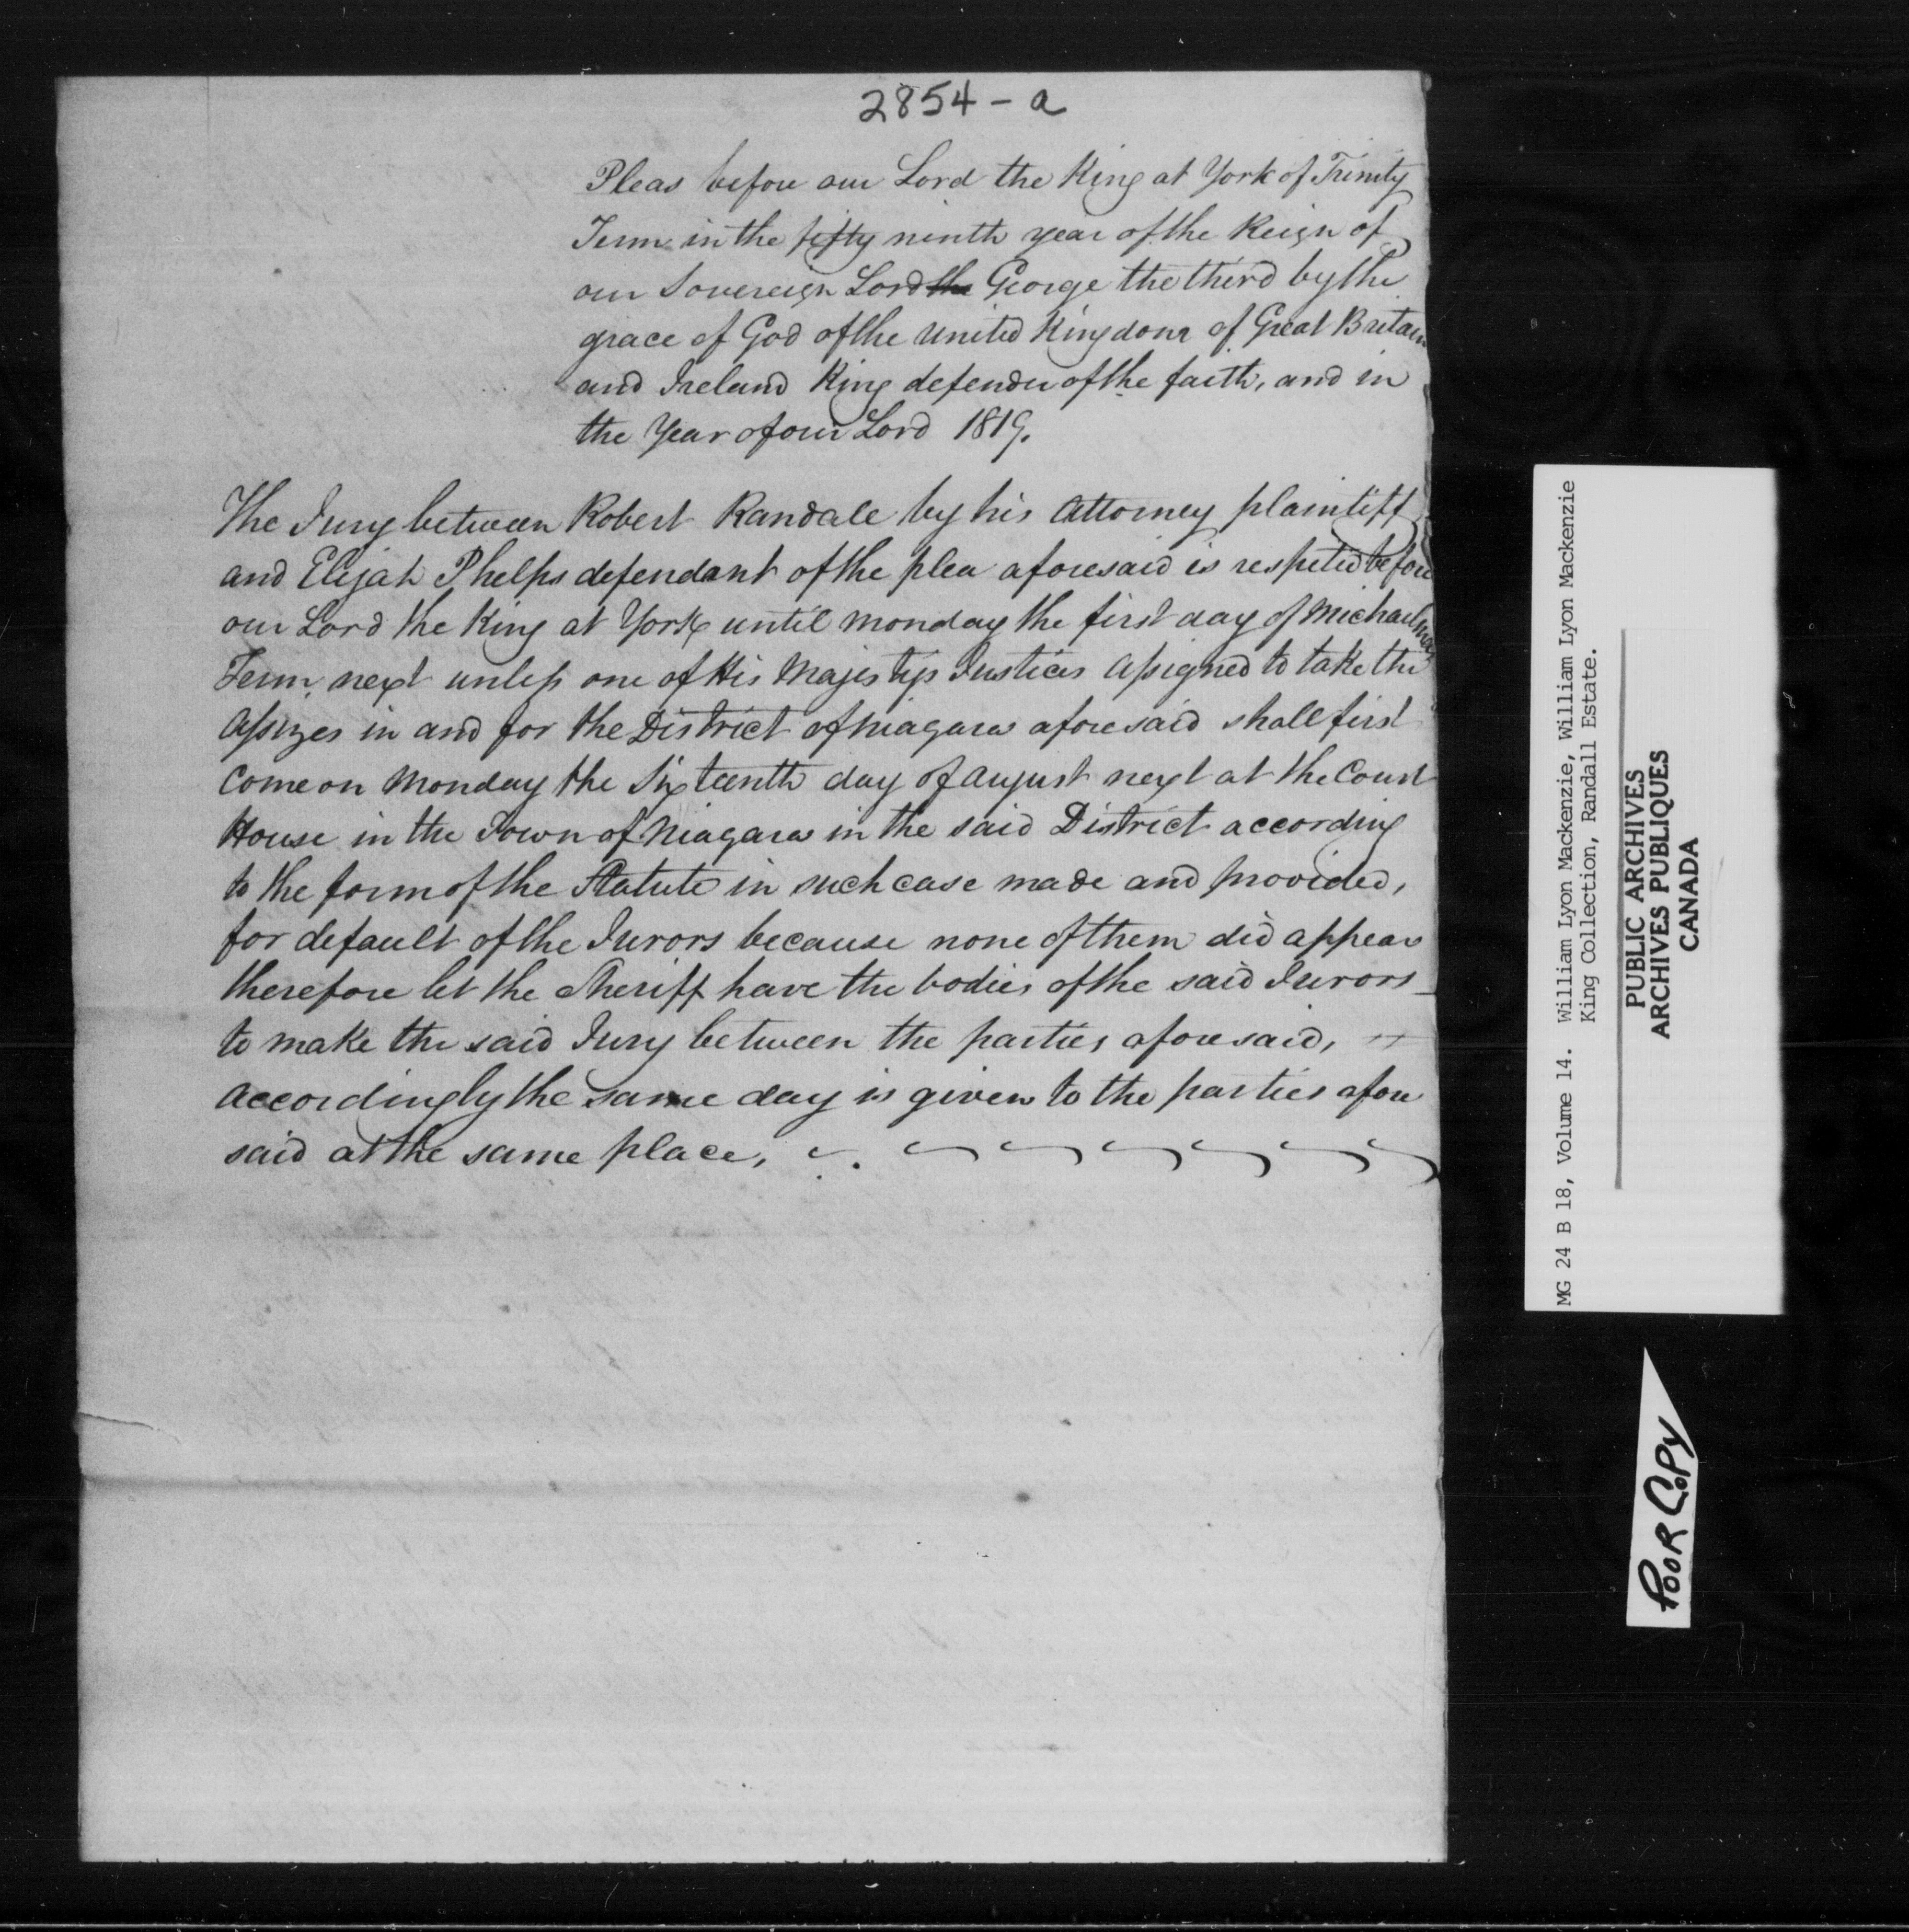 2854 - a
Pleas before our Lord the King at York of Trinity
Term in the fifty ninth year of the Reign of
our Sovereign Lord the George the third by the
grace of God of the united Kingdom of Great Britain
and Ireland King defender of the faith, and in
the Year of our Lord 1819.
The Jury between Robert Randale by his Attorney plaintiff
and Elijah Phelps defendant of the plea aforesaid is respited before
our Lord the King at York until monday the first day of Michaelmas
Term next unless one of His Majestys Justices Assigned to take the
Assizes in and for the District of Niagara aforesaid shall first
Come on Monday the Sixteenth day of August next at the Court
House in the Town of Niagara in the said District according
to the form of the Statute in such case made and provided,
for default of the Jurors because none of them did appear
therefore let the Sheriff have the bodies of the said Jurors
to make the said Jury between the parties aforesaid,
accordingly the same day is given to the parties afore
said at the same place,
MG 24 B 18, Volume 14. William Lyon Mackenzie, William Lyon Mackenzie
King Collection, Randall Estate.
PUBLIC ARCHIVES
ARCHIVES PUBLIQUES
CANADA
POOR COPY